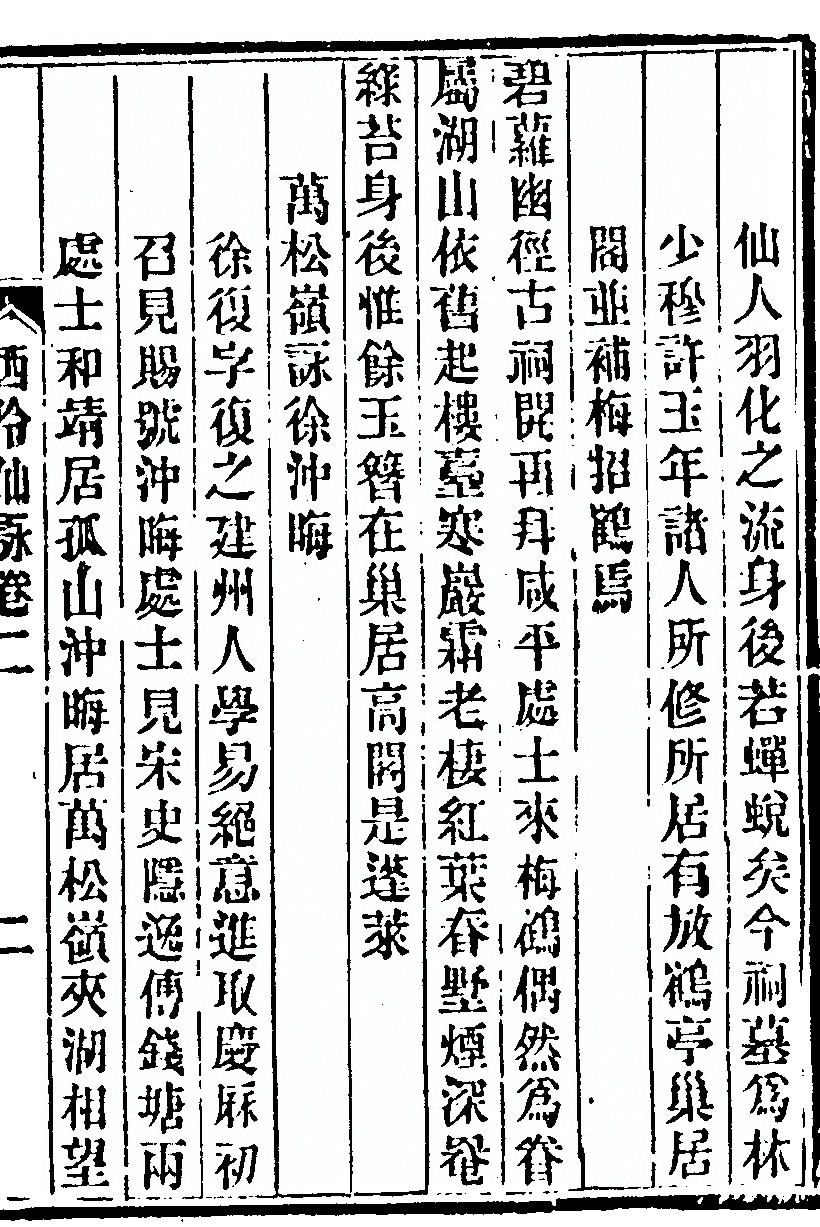 仙人羽化之流身後若蟬蛻矣今祠墓爲林
少穆許玉年諸人所修所居有放鶴亭巢居
閣並補梅招鶴焉
碧蘿幽徑古祠開再拜咸平處士來梅鶴偶然爲眷
屬湖山依舊起樓臺寒巖霜老棲紅葉春墅煙深卷
綠苔身後惟餘玉簪在巢居高閣是蓬萊
萬松嶺詠徐沖晦
徐復字復之建州人學易絕意進取慶厤初
召見賜號沖晦處士見宋史隱逸傳錢塘兩
處士和靖居孤山沖晦居萬松嶺夾湖相望
西泠仙詠卷二
二